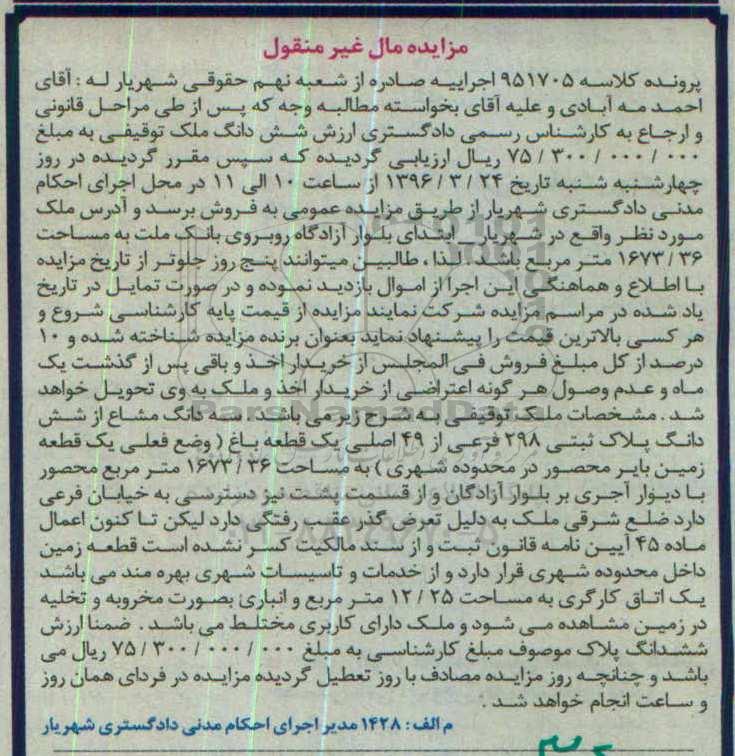 مزایده مال غیر منقول
پرونده کلاسه ۹۵۱۷۰۵ اجراییه صادره از شعبه نهم حقوقی شهریار له : آقای
احمد مه آبادی و علیه آقای بخواسته مطالبه وجه که پس از طی مراحل قانونی
و ارجاع به کارشناس رسمی دادگستری ارزش شش دانگ ملک توقیفی به مبلغ
۷۵/۳۰۰/۰۰۰/۰۰۰ ریال ارزیابی گردیده که سپس مقرر گردیده در روز
چهارشنبه شنبه تاریخ ۱۳۹۶/۳/۲۴ از ساعت ۱۰ الی ۱۱ در محل اجرای احکام
مدنی دادگستری شهریار از طریق مزایده عمومی به فروش برسد و آدرس ملک
مورد نظر واقع در شهریار _ ابتدای بلوار آزادگاه روبروی بانک ملت به مساحت
۱۶۷۳/۳۶ متر مربع باشد لذا ، طالبین میتوانند پنج روز جلوتر از تاریخ مزایده
با اطلاع و هماهنگی این اجرا از اموال بازدید نموده و در صورت تمایل در تاریخ
یاد شده در مراسم مزایده شرکت نمایند مزایده از قیمت پایه کارشناسی شروع و
هر کسی بالاترین قیمت را پیشنهاد نماید بعنوان برنده مزایده شناخته شده و ۱۰
درصد از کل مبلغ فروش فی المجلس از خریدار اخذ و باقی پس از گذشت یک
ماه و عدم وصول هر گونه اعتراضی از خریدار اخذ و ملک به وی تحویل خواهد
شد . مشخصات ملک توقیفی به شرح زیر می باشد: سه دانگ مشاع از شش
دانگ پلاک ثبتی ۲۹۸ فرعی از ۴۹ اصلی یک قطعه باغ ( وضع فعلی یک قطعه
زمین بایر محصور در محدوده شهری ) به مساحت ۱۶۷۳/۳۶ متر مربع محصور
با دیوار آجری بر بلوار آزادگان و از قسمت پشت نیز دسترسی به خیابان فرعی
دارد ضلع شرقی ملک به دلیل تعرض گذر عقب رفتگی دارد لیکن تا کنون اعمال
ماده ۴۵ آیین نامه قانون ثبت و از سند مالکیت کسر نشده است قطعه زمین
داخل محدوده شهری قرار دارد و از خدمات و تاسیسات شهری بهره مند می باشد
یک اتاق کارگری به مساحت ۱۲/۲۵ متر مربع و انباری بصورت مخروبه و تخلیه
در زمین مشاهده می شود و ملک دارای کاربری مختلط می باشد . ضمنا ارزش
ششدانگ پلاک موصوف مبلغ کارشناسی به مبلغ ۷۵/۳۰۰/۰۰۰/۰۰۰ ریال می
باشد و چنانچه روز مزایده مصادف با روز تعطیل گردیده مزایده در فردای همان روز
و ساعت انجام خواهد شد .
م الف : ۱۴۲۸ مدیر اجرای احکام مدنی دادگستری شهریار
ParsNamadData